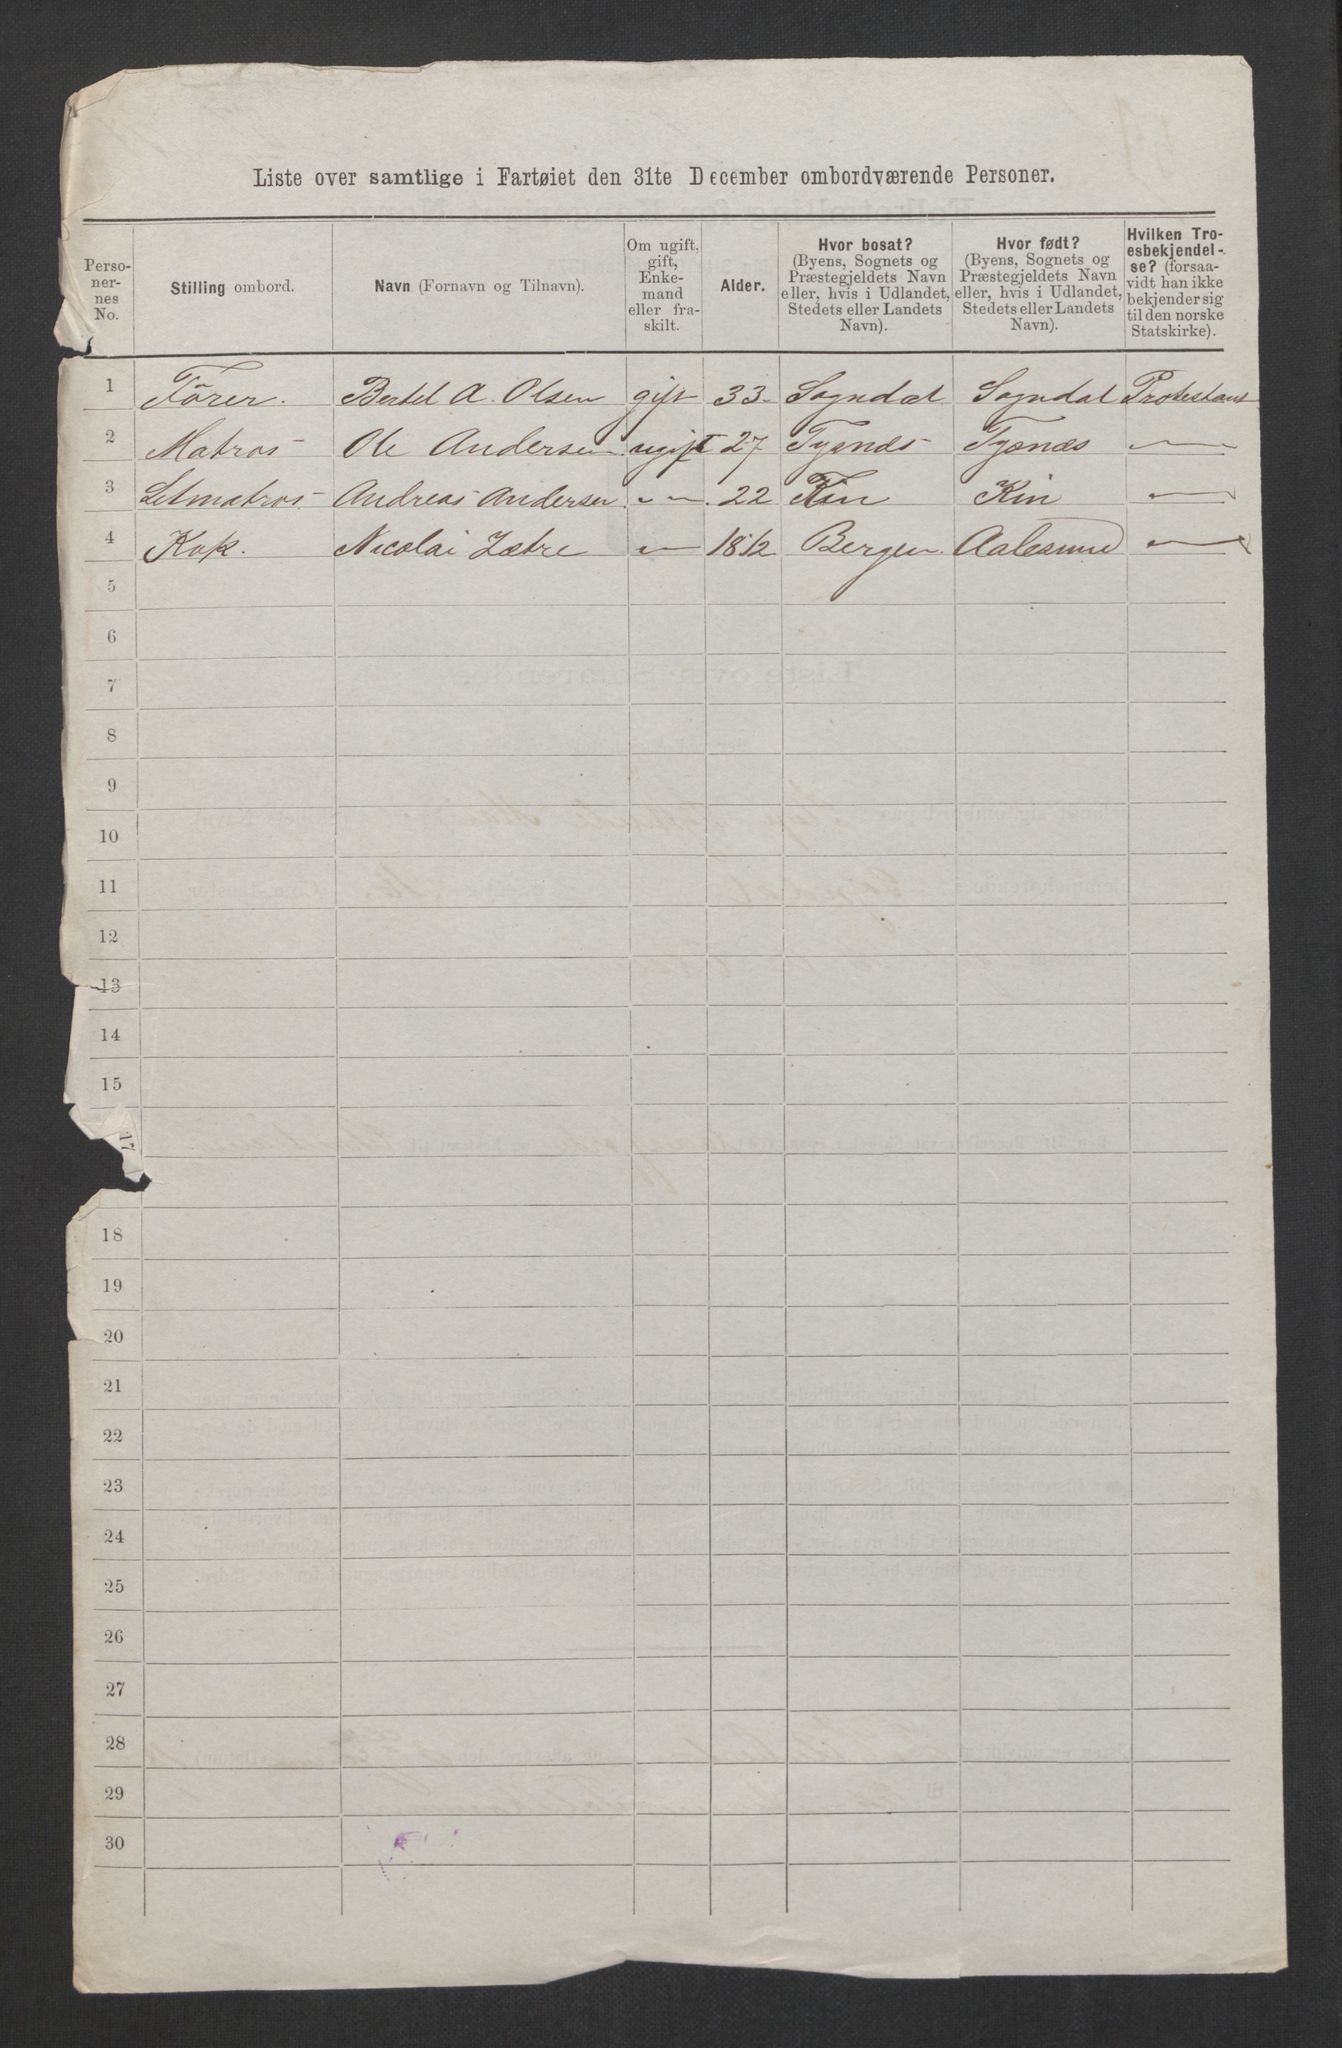 Liste over samtlige i Fartøiet den 31te December ombordværende Personer.
Perso-
ner-
nes
No.
Stilling ombord.
Navn (Fornavn og Tilnavn).
Om ugift,
gift,
Enke-
mand
eller fra-
skilt.
Alder.
Hvor bosat?
(Byens, Sognets og
Præstegjeldets Navn
eller, hvis i Udlandet,
Stedets eller Landets
Navn).
Hvor født?
(Byens, Sognets og
Præstegjeldets Navn
eller, hvis i Udlandet,
Stedets eller Landets
Navn).
Hvilken Tro-
esbekjendel-
se? (forsaa-
vidt han ikke
bekjender sig
til den norske
Statskirke).
1 Förer. Bertel A. Olsen gift 33 Sogndal Sogndal Protestant
2 Matros Ole Andersen ugift 27 Tysnæs Tysnæs —
3 Letmatros Andreas Andersen " 22 Kin Kin —
4 Kok. Nicolai Sætre " 18 1/2 Bergen Aalesund —
5
6
7
8
9
10
11
12
13
14
15
17
18
19
20
21
22
23
24
25
26
27
28
29
30